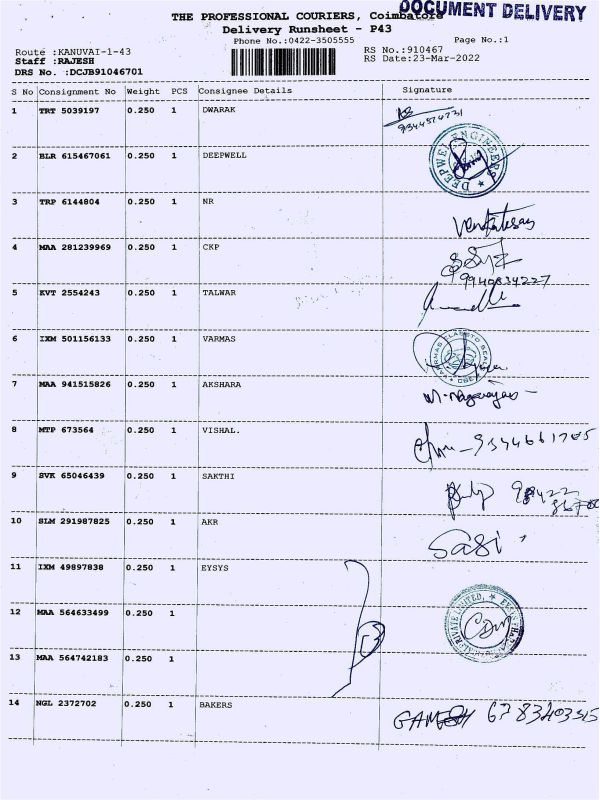 DOCUMENT DELIVERY
THE PROFESSIONAL COURIERS, Coimbatore
Delivery Runsheet - P43
Phone No.:0422-3505555 Page No.:1
Route :KANUVAI-1-43 RS No.:910467
Staff :RAJESH RS Date:23-Mar-2022
DRS No. :DCJB91046701
S No Consignment No Weight PCS Consignee Details Signature
1 TRT 5039197 0.250 1 DWARAK
2 BLR 615467061 0.250 1 DEEPWELL DEEPWEL ENGINEERS
3 TRP 6144804 0.250 1 NR Venkatesan
4 MAA 281239969 0.250 1 CKP
9940834227
5 KVT 2554243 0.250 1 TALWAR
6 IXM 501156133 0.250 1 VARMAS
7 MAA 941515826 0.250 1 AKSHARA
8 MTP 673564 0.250 1 VISHAL. 9344661705
9 SVK 65046439 0.250 1 SAKTHI
10 SLM 291987825 0.250 1 AKR Sasi
11 IXM 49897838 0.250 1 EYSYS
12 MAA 564633499 0.250 1
13 MAA 564742183 0.250 1
14 NGL 2372702 0.250 1 BAKERS GANESH 6783203515